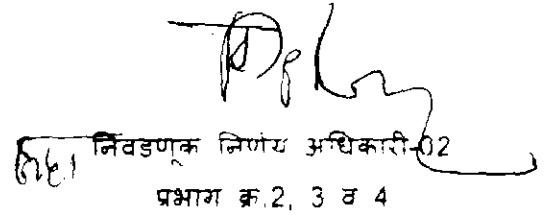 निवडणूक निर्णय अधिकारी-02
प्रभाग क्र.2, 3 व 4